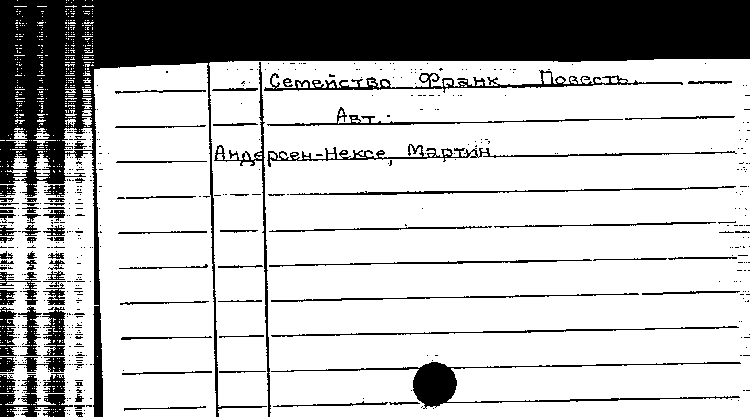 Семейство Франк Повесть.
Авт.:
Андерсен-Нексе, Мартин